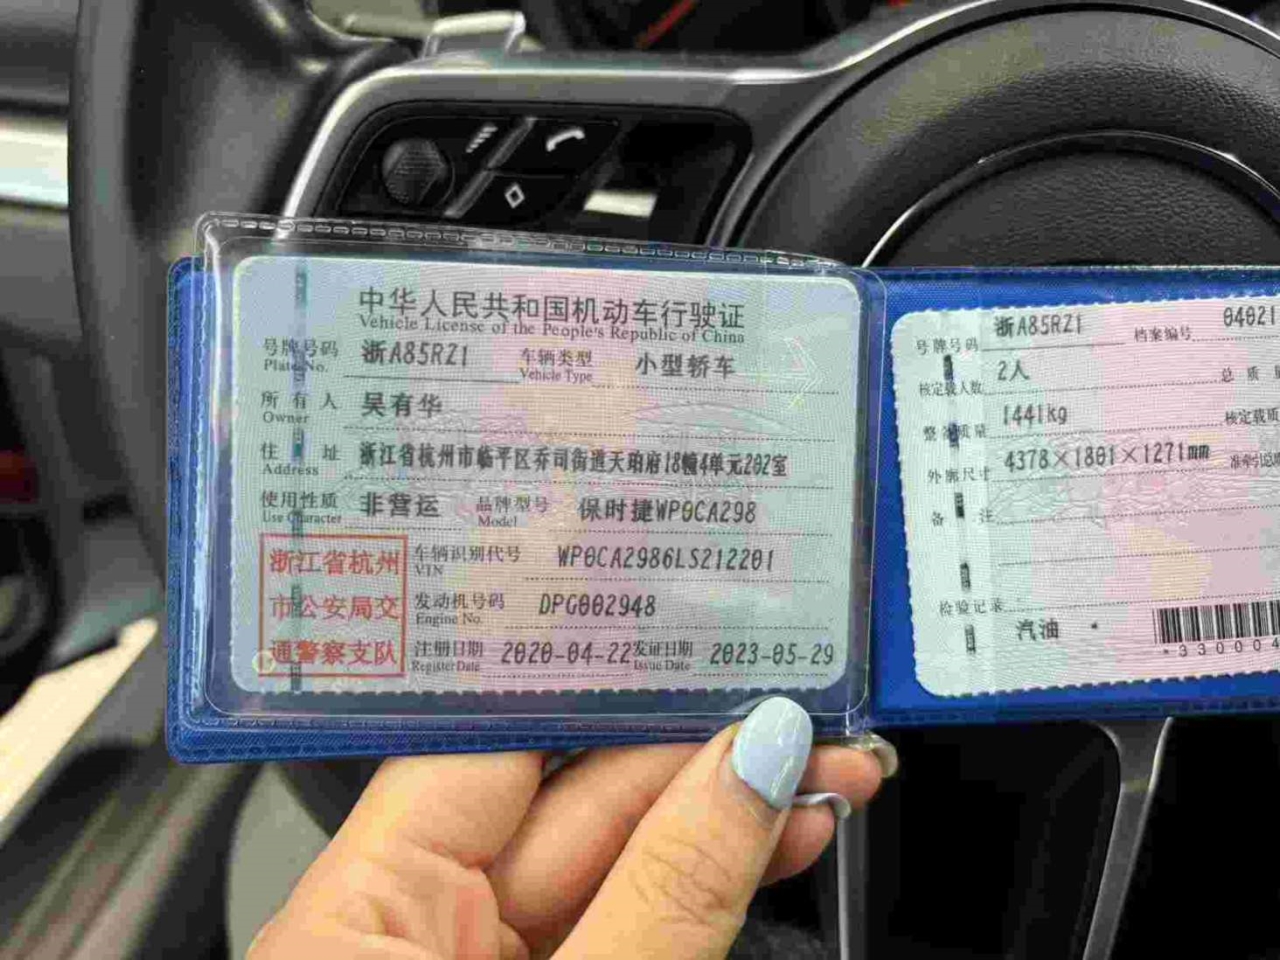 中华人民共和国机动车行驶证
Vehicle License of the People's Republic of China
号牌号码 浙A85RZ1 车辆类型 小型轿车
Plate No. Vehicle Type
所有人 吴有华
Owner
住址 浙江省杭州市临平区乔司街道天珺府18幢4单元202室
Address
使用性质 非营运 品牌型号 保时捷WP0CA298
Use Character Model
浙江省杭州
市公安局交
通警察支队
车辆识别代号 WP0CA2986LS212201
VIN
发动机号码 DPG002948
Engine No.
注册日期 2020-04-22 发证日期 2023-05-29
Register Date Issue Date
号牌号码 浙A85RZ1 档案编号 04021
核定载人数 2人 总质量
整备质量 1441kg 核定载质
外廓尺寸 4378×1801×1271mm
备注
检验记录
汽油
*330004